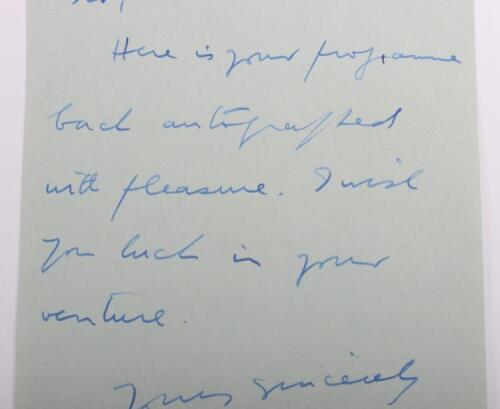 Here is your programme
back autografted
with pleasure. I wish
you luck in your
venture.
Yours sincerely